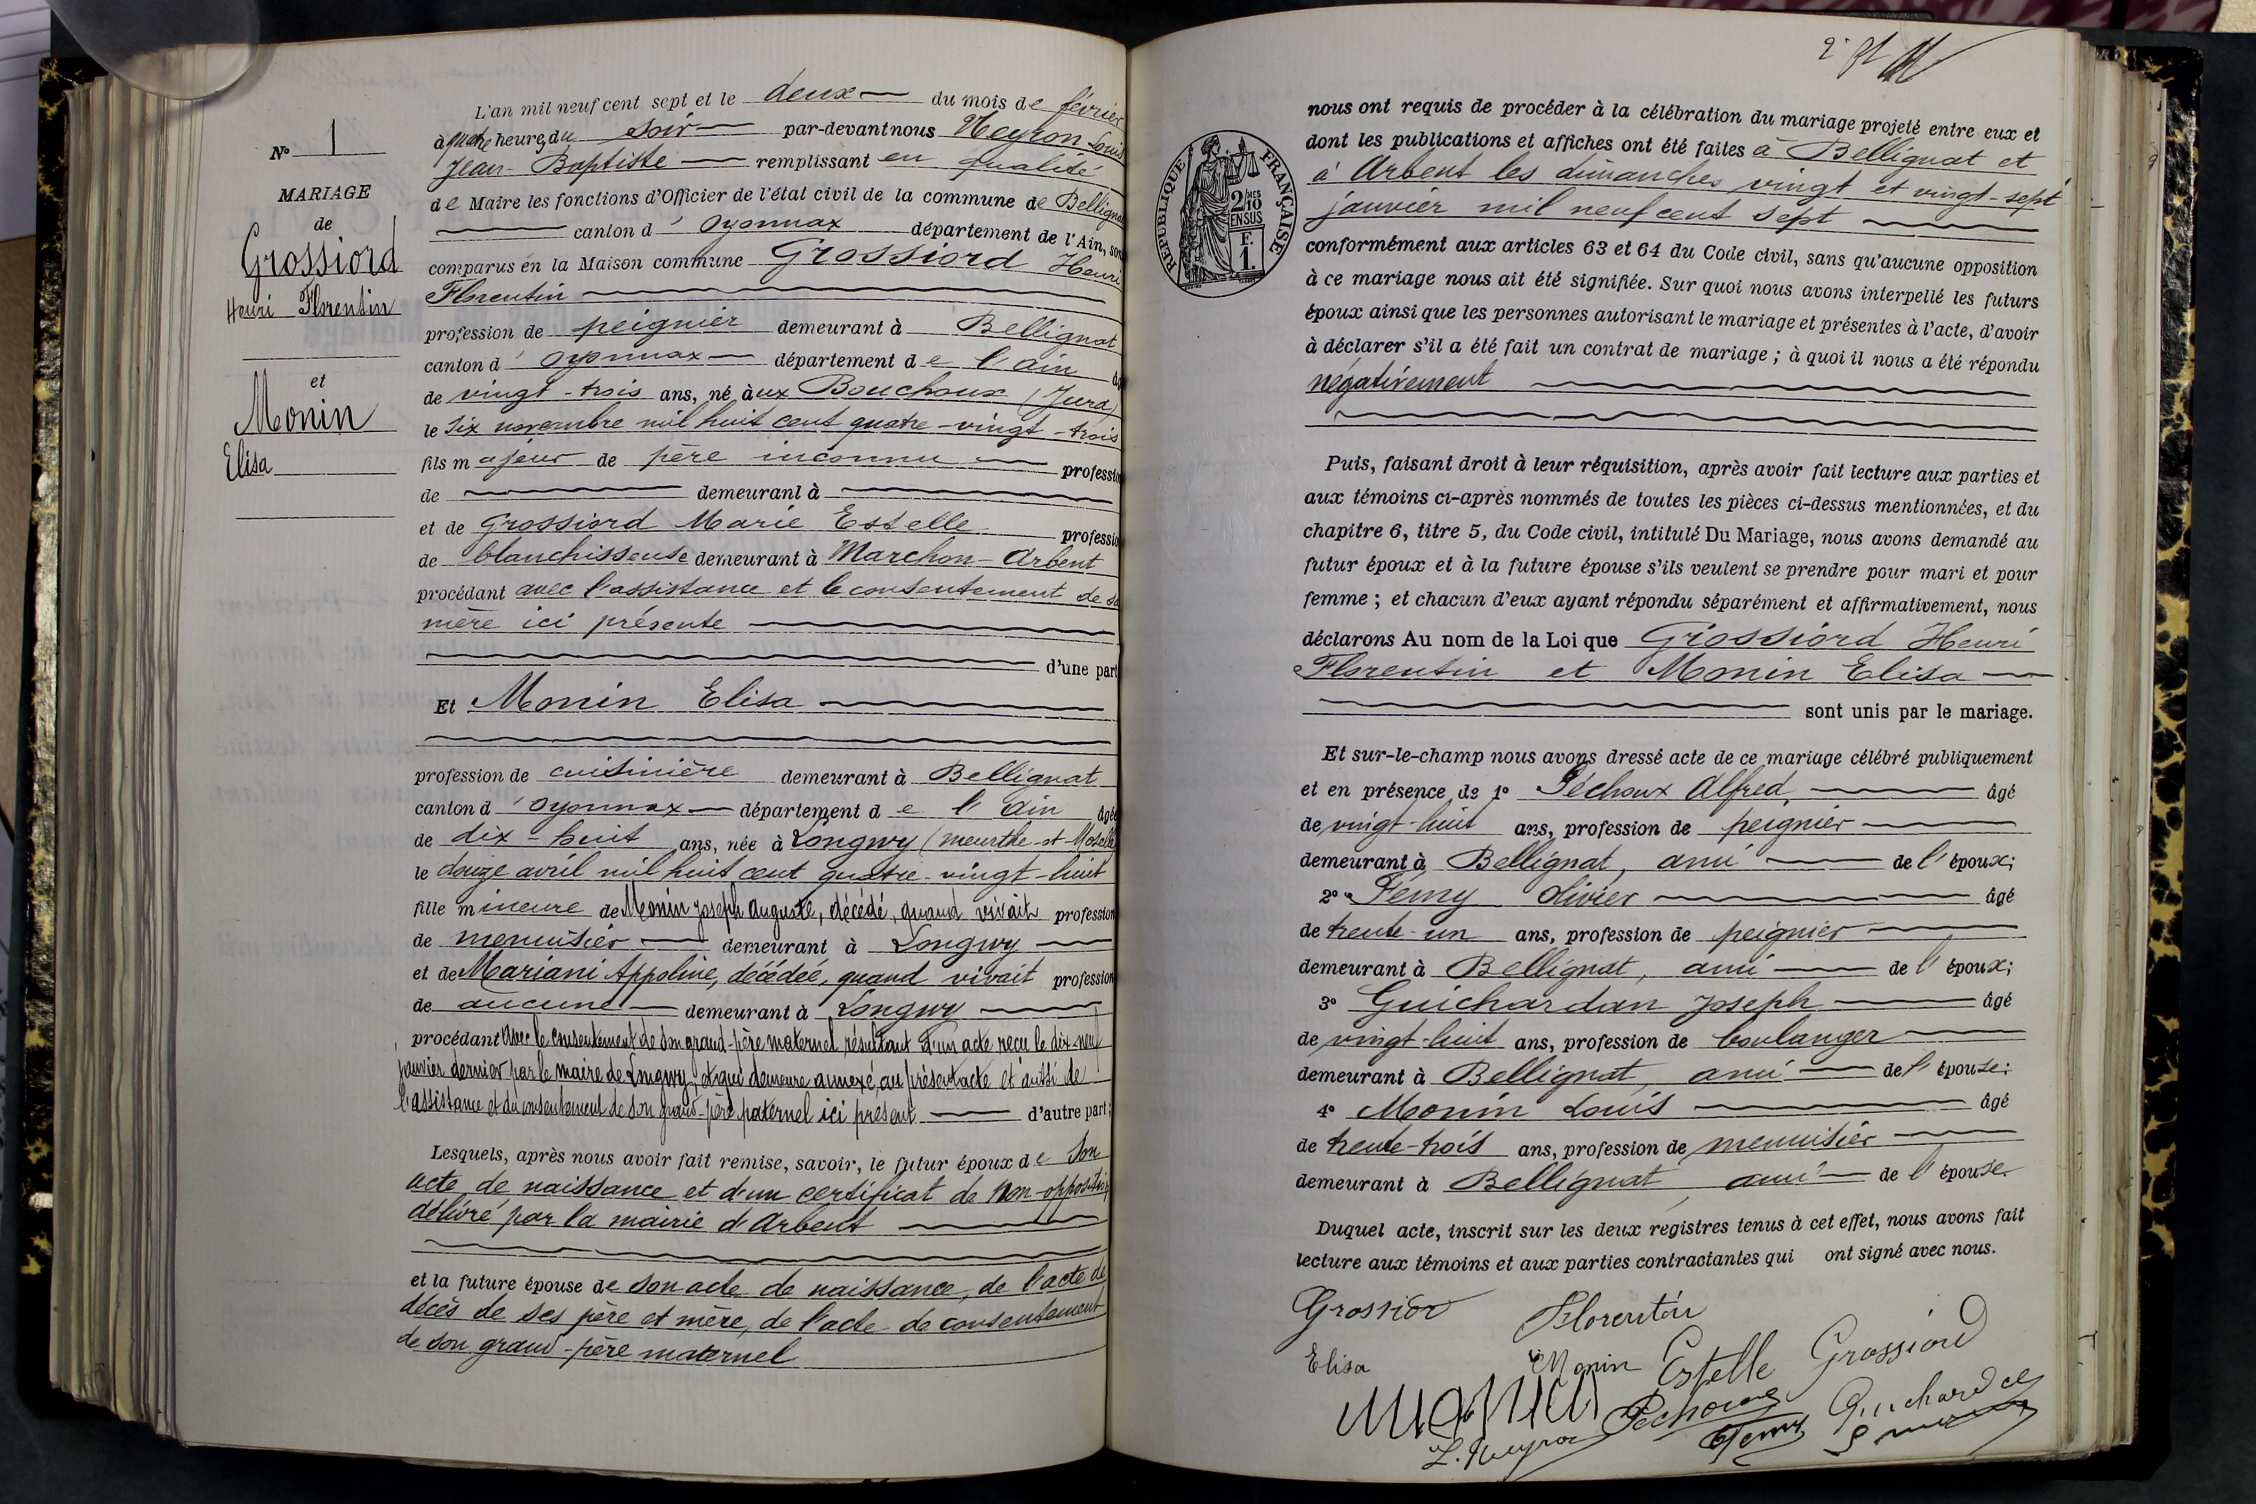 N° 1
MARIAGE
de
Grossiord
Henri Florentin
et
Monin
Elisa
L'an mil neuf cent sept et le deux du mois de février
à quatre heures du soir par-devant nous Neyron Louis
Jean-Baptiste remplissant en qualité
de Maire les fonctions d'Officier de l'état civil de la commune de Bellignat
canton d'Oyonnax département de l'Ain, son
comparus en la Maison commune Grossiord Henri
Florentin
profession de peignier demeurant à Bellignat
canton d'Oyonnax département de l'Ain âgé
de vingt-trois ans, né aux Bouchoux (Jura)
le six novembre mil huit cent quatre-vingt-trois
fils majeur de père inconnu profession
de demeurant à
et de Grossiord Marie Estelle profession
de blanchisseuse demeurant à Marchon-Arbent
procédant avec l'assistance et le consentement de sa
mère ici présente
d'une part
Et Monin Elisa
profession de cuisinière demeurant à Bellignat
canton d'Oyonnax département de l'Ain âgée
de dix-huit ans, née à Longwy (Meurthe-et-Moselle)
le douze avril mil huit cent quatre-vingt-huit
fille mineure de Monin Joseph Auguste, décédé, quand vivait profession
de menuisier demeurant à Longwy
et de Mariani Appoline, décédée, quand vivait profession
de aucune demeurant à Longwy
procédant avec le consentement de son grand-père maternel résultant d'un acte reçu le dix-neuf
janvier dernier par le maire de Longwy, et qui demeure annexé au présent acte et aussi de
l'assistance et du consentement de son grand-père paternel ici présent d'autre part;
Lesquels, après nous avoir fait remise, savoir, le futur époux de son
acte de naissance et d'un certificat de non-opposition
délivré par la mairie d'Arbent
et la future épouse de son acte de naissance, de l'acte de
décès de ses père et mère, de l'acte de consentement
de son grand-père maternel
RÉPUBLIQUE FRANÇAISE
2/10
EN SUS
F.
1.
nous ont requis de procéder à la célébration du mariage projeté entre eux et
dont les publications et affiches ont été faites à Bellignat et
à Arbent les dimanches vingt et vingt-sept
janvier mil neuf cent sept
conformément aux articles 63 et 64 du Code civil, sans qu'aucune opposition
à ce mariage nous ait été signifiée. Sur quoi nous avons interpellé les futurs
époux ainsi que les personnes autorisant le mariage et présentes à l'acte, d'avoir
à déclarer s'il a été fait un contrat de mariage ; à quoi il nous a été répondu
négativement
Puis, faisant droit à leur réquisition, après avoir fait lecture aux parties et
aux témoins ci-après nommés de toutes les pièces ci-dessus mentionnées, et du
chapitre 6, titre 5, du Code civil, intitulé Du Mariage, nous avons demandé au
futur époux et à la future épouse s'ils veulent se prendre pour mari et pour
femme ; et chacun d'eux ayant répondu séparément et affirmativement, nous
déclarons Au nom de la Loi que Grossiord Henri
Florentin et Monin Elisa
sont unis par le mariage.
Et sur-le-champ nous avons dressé acte de ce mariage célébré publiquement
et en présence de 1° Péchoux Alfred, âgé
de vingt-huit ans, profession de peignier
demeurant à Bellignat, ami de l'époux;
2° Femy Olivier âgé
de trente-un ans, profession de peignier
demeurant à Bellignat, ami de l'époux;
3° Guichardan Joseph âgé
de vingt-huit ans, profession de boulanger
demeurant à Bellignat, ami de l'épouse;
4° Monin Louis âgé
de trente-trois ans, profession de menuisier
demeurant à Bellignat, ami de l'épouse
Duquel acte, inscrit sur les deux registres tenus à cet effet, nous avons fait
lecture aux témoins et aux parties contractantes qui ont signé avec nous.
Grossior Florentin
Elisa Monin Estelle Grossiord
Péchoux
L. Neyron Femy